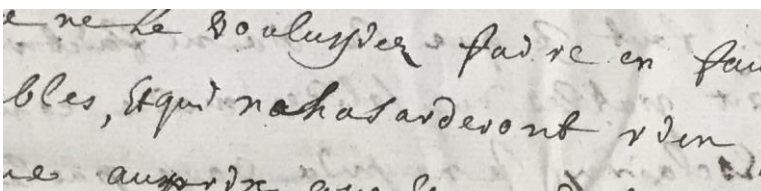 ne le voulussiez faire en fau
bles, Et qui nahasarderont rien
ne au